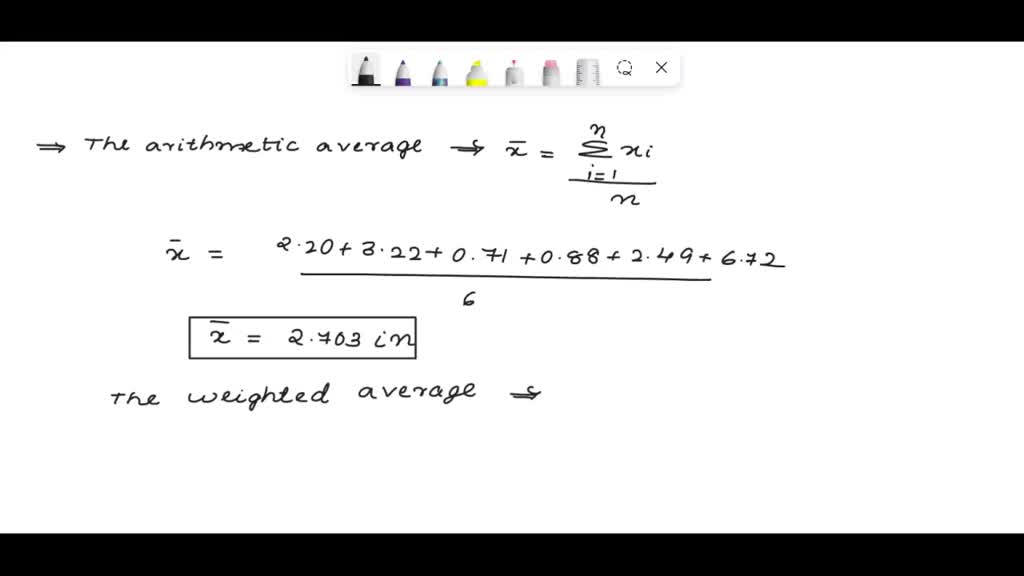 ⇒ The arithmetic average → x̄ = n
Σ xi
i=1
n
x̄ = 2.20+3.22+0.71+0.88+2.49+6.72
6
x̄ = 2.703 in
The weighted average ⇒